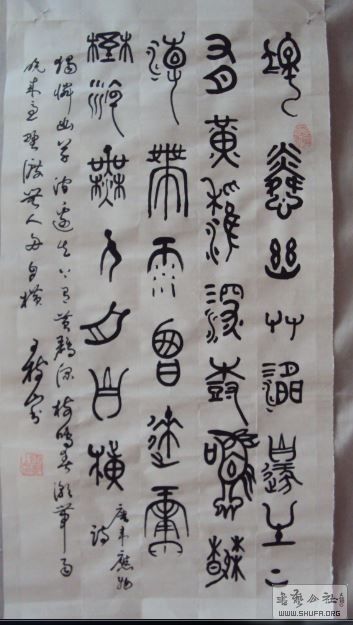 獨憐幽艸澗邊生上
有黃鸝深樹鳴春
潮帶雨晚來急
野渡無人舟自橫
唐韋應物
詩
獨憐幽草澗邊生上有黃鸝深樹鳴春潮帶雨
晚來急野渡無人舟自橫
書藝公社
WWW.SHUFA.ORG